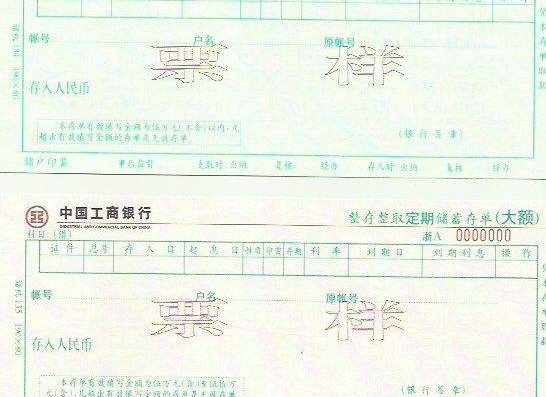 帐号 户名 原帐号
票样
存入人民币
本存单有效填写金额为伍万元(不含)以内,凡
超出有效填写金额的存单是无效存单
(银行签章)
储户印鉴 事后监督 支取时:出纳 复核 经办 存入时:出纳 复核 经办
中国工商银行 整存整取定期储蓄存单(大额)
INDUSTRIAL AND COMMERCIAL BANK OF CHINA
科目:(借) 浙A 0000000
证件 总号 存入日 起息日 性质 印密 存期 利率 到期日 到期利息 操作
帐号 户名 原帐号
票样
存入人民币
本存单有效填写金额为伍万元(含)至伍拾万
元(含),凡超出有效填写金额的存单是无效存单
(银行签章)